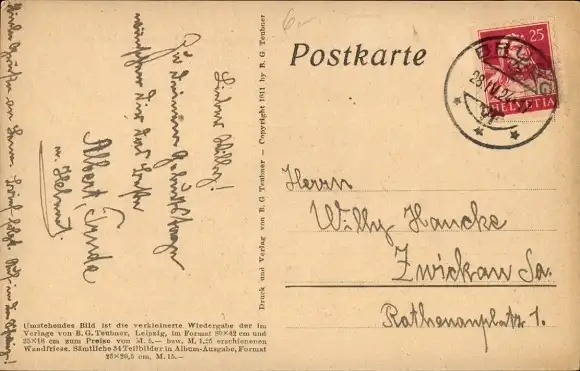 Postkarte
25
HELVETIA
BRUGG
Lieber Willy!
Zu Deinem Geburtstage
wünschen Dir das Beste
Albert, Trude
u. Helmut.
Herrn
Willy Hancke
Zwickau Sa.
Rathenauplatz 1.
Druck und Verlag von B. G. Teubner – Copyright 1911 by B. G. Teubner
Umstehendes Bild ist die verkleinerte Wiedergabe der im
Verlage von B. G. Teubner, Leipzig, im Format 80×42 cm und
25×18 cm zum Preise von M. 5.— bzw. M. 1.25 erschienenen
Wandfriese. Sämtliche 34 Teilbilder in Album-Ausgabe, Format
25×20,5 cm, M. 15.—